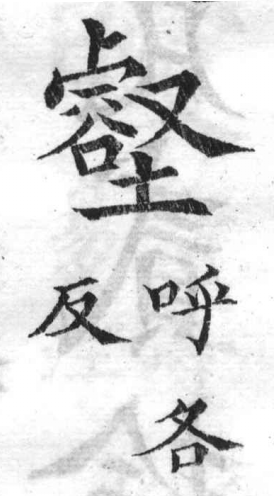 壑
呼各
反